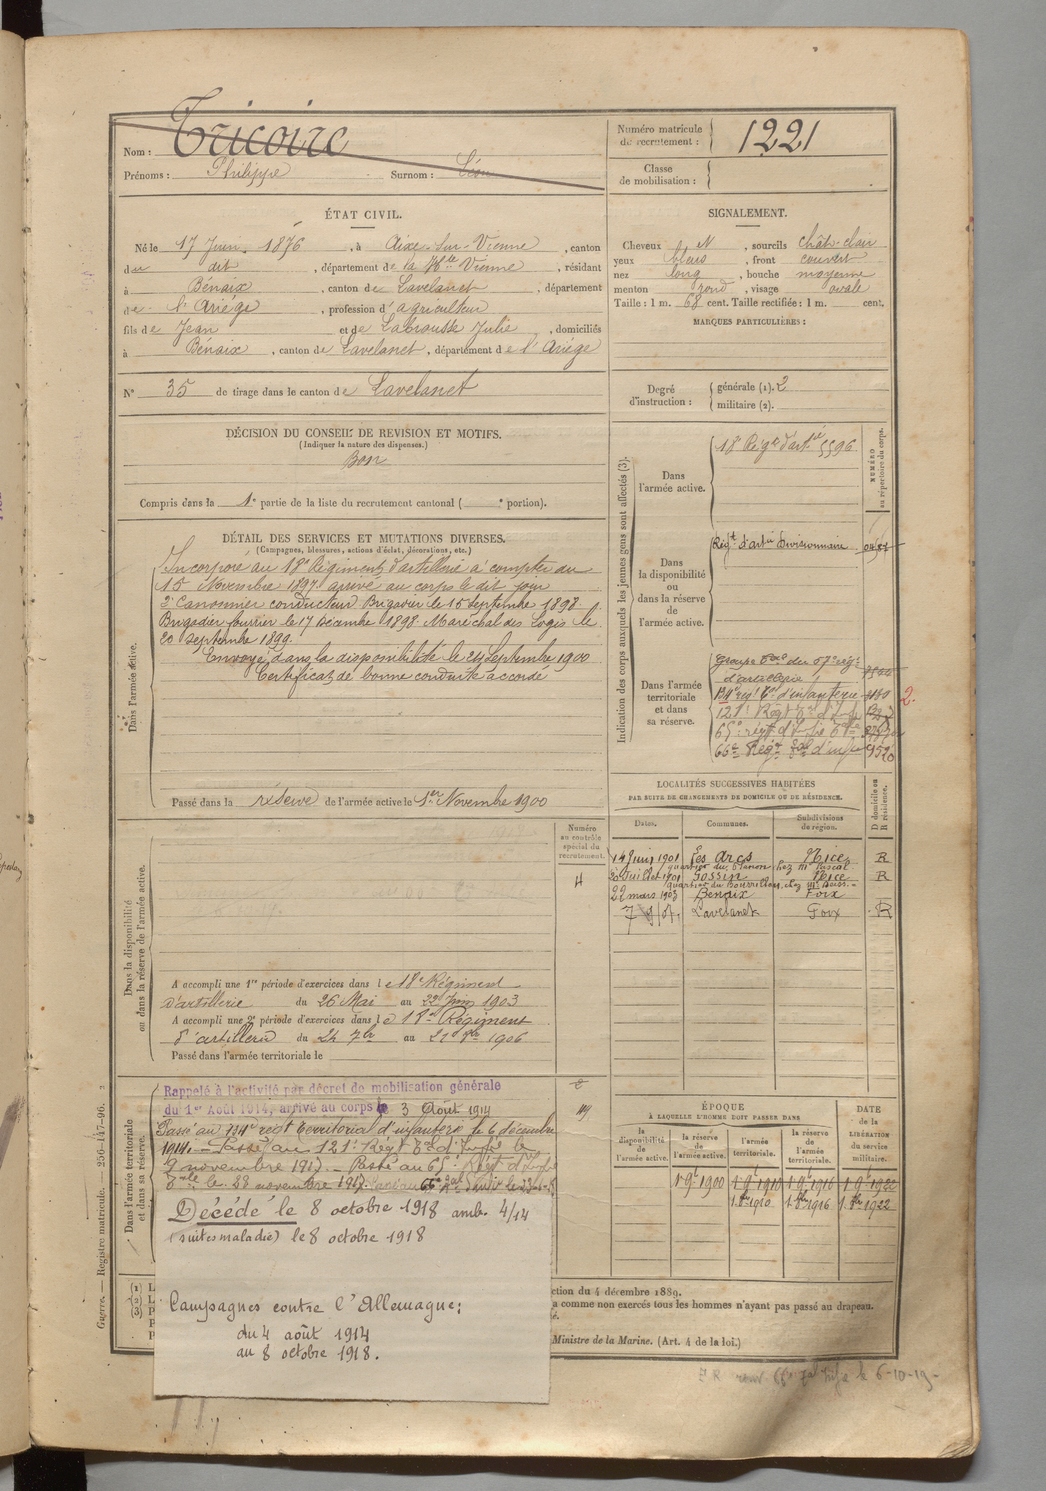 Nom : Tricoire
Prénoms : Philippe Surnom : Léon
Numéro matricule de recrutement : 1221
Classe de mobilisation :
ÉTAT CIVIL.
Né le 17 Juin 1876, à Aixe-sur-Vienne, canton
du dit, département de la Hte Vienne, résidant
à Bénaix, canton de Lavelanet, département
de l'Ariége, profession d'agriculteur
fils de Jean et de Labrousse Julie, domiciliés
à Bénaix, canton de Lavelanet, département de l'Ariége
N° 35 de tirage dans le canton de Lavelanet
SIGNALEMENT.
Cheveux N, sourcils chât-clair
yeux bleus, front couvert
nez long, bouche moyenne
menton rond, visage ovale
Taille : 1 m. 68 cent. Taille rectifiée : 1 m. cent.
MARQUES PARTICULIÈRES :
Degré d'instruction : générale (1). 2
militaire (2).
DÉCISION DU CONSEIL DE REVISION ET MOTIFS.
(Indiquer la nature des dispenses.)
Bon
Compris dans la 1e partie de la liste du recrutement cantonal ( e portion).
DÉTAIL DES SERVICES ET MUTATIONS DIVERSES.
(Campagnes, blessures, actions d'éclat, décorations, etc.)
Dans l'armée active.
Incorporé au 18e Régiment d'artillerie à compter du
15 Novembre 1897 arrivé au corps le dit jour
2e Canonnier conducteur Brigadier le 15 septembre 1898
Brigadier fourrier le 17 Décembre 1898. Maréchal des Logis le
20 septembre 1899.
Envoyé dans la disponibilité le 24 Septembre 1900
Certificat de bonne conduite accordé
Passé dans la réserve de l'armée active le 1er Novembre 1900
Indication des corps auxquels les jeunes gens sont affectés (3).
NUMÉRO au répertoire du corps.
Dans l'armée active.
18e Régt d'artie 5596
Dans la disponibilité ou dans la réserve de l'armée active.
Régt d'artie Divisionnaire
Dans l'armée territoriale et dans sa réserve.
Groupe tal du 57e rég.
d'artillerie
134e régt t. d'infanterie 2.
121e Régt tal d'Inf
65e régt d'Infie tle
66e Régt tal d'infie 9520
LOCALITÉS SUCCESSIVES HABITÉES
PAR SUITE DE CHANGEMENTS DE DOMICILE OU DE RÉSIDENCE.
Dates. Communes. Subdivisions de région. D domicile ou R résidence.
14 Juin 1901 Les Arcs Nice R
20 Juillet 1901 Gassin Nice R
22 mars 1903 Bénaix Foix
Lavelanet Foix R
Dans la disponibilité ou dans la réserve de l'armée active.
Numéro au contrôle spécial du recrutement.
4
A accompli une 1re période d'exercices dans le 18e Régiment
d'artillerie du 26 Mai au 22 Juin 1903
A accompli une 2e période d'exercices dans le 18e Régiment
d'artillerie du 24 7bre au 21 8bre 1906
Passé dans l'armée territoriale le
Dans l'armée territoriale et dans sa réserve.
Rappelé à l'activité par décret de mobilisation générale
du 1er Août 1914, arrivé au corps le 3 Août 1914
Passé au 134e régt territorial d'infanterie le 6 décembre
1914. — Passé au 121e Régt Tal d'Infie le
9 novembre 1917. — Passé au 65e Régt d'Infie
Tale le 28 novembre 1917.
Décédé le 8 octobre 1918 amb. 4/14
(suites maladie) le 8 octobre 1918
Campagnes contre l'Allemagne:
du 4 août 1914
au 8 octobre 1918.
ÉPOQUE
À LAQUELLE L'HOMME DOIT PASSER DANS
la disponibilité de l'armée active.
la réserve de l'armée active.
l'armée territoriale.
la réserve de l'armée territoriale.
DATE de la LIBÉRATION du service militaire.
1 9bre 1900 1 9bre 1910 1 9bre 1916 1 9bre 1922
1. 8bre 1910 1. 8bre 1916 1. 8bre 1922
(1) L
(2) L
(3) P
P
ction du 4 décembre 1889.
a comme non exercés tous les hommes n'ayant pas passé au drapeau.
Ministre de la Marine. (Art. 4 de la loi.)
Guerre. — Registre matricule. — 256-147-96.
le 6-10-19-